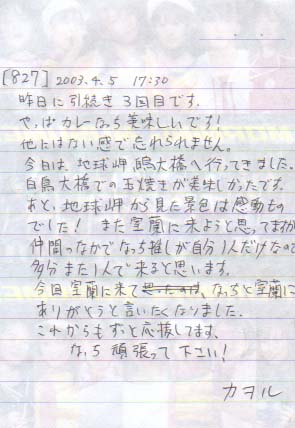 [827] 2003.4.5 17:30
昨日に引続き3回目です。
やっぱカレーなっち美味しいです!
他にはない感で忘れられません。
今日は、地球岬、白鳥大橋へ行ってきました。
白鳥大橋での玉焼きが美味しかったです。
あと、地球岬から見た景色は感動もの
でした! また室蘭に来ようと思ってますが
仲間っなかでなっち推しが自分1人だけなので
多分また1人で来ると思います。
今回室蘭に来て思ったのは、なっちと室蘭に
ありがとうと言いたくなりました。
これからもずっと応援してます。
なっち 頑張って下さい!
カヲル